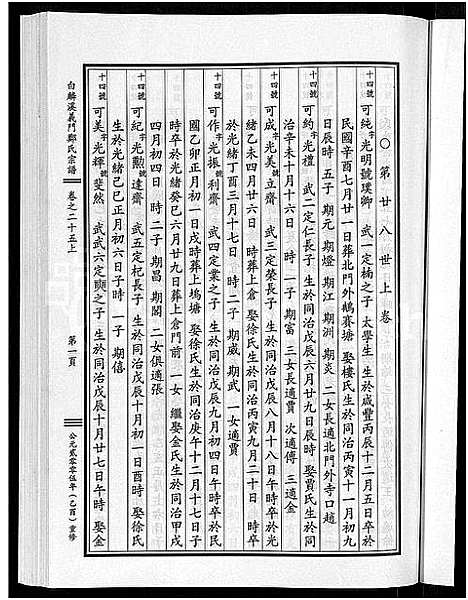 〇第廿八世上卷
十四號 可純字光明號璞卿 武一定楠之子 太學生 生於咸豐丙辰十二月五日卒於
民國辛酉七月廿一日葬北門外鷓賽塘 娶樓氏生於同治丙寅十一月初九
日辰時 五子 期元 期燈 期江 期洲 期炎 二女長適北門外寺口趙
十四號 可約字光禮 武二定仁長子 生於同治戊辰六月廿九日辰時 娶賈氏生於同
治辛未十月十六日 時 一子 期富 三女長適賈 次適傅 三適金
十四號 可成字光美 立齋 武三定榮長子 生於同治戊辰八月十八日午時卒於光
緒乙未四月廿六日 時葬上倉 娶徐氏生於同治丙寅九月二十日 時卒
於光緒丁酉三月十七日 時 二子 期威 期武 一女適賈
十四號 可作字光振 利齋 武四定業之子 生於同治戊辰九月初四日午時卒於民
國乙卯正月初一日戌時葬上塢塘 娶徐氏生於同治庚午十二月十七日子
時卒於光緒癸巳六月廿九日葬上倉門前 一女 繼娶金氏生於同治甲戌
四月初四日 時 二子 期昌 期閣 二女俱適張
十四號 可紀字光勳 達齋 武五定杞長子 生於同治戊辰十月初一日酉時 娶徐氏
生於光緒己巳正月初六日子時 一子 期僖
十四號 可美字光輝 斐然 武六定 之子 生於同治戊辰十月廿七日午時 娶金
白麟溪義門鄭氏宗譜 卷之二十五上 第一頁 公元貳零零伍年(乙酉)重修